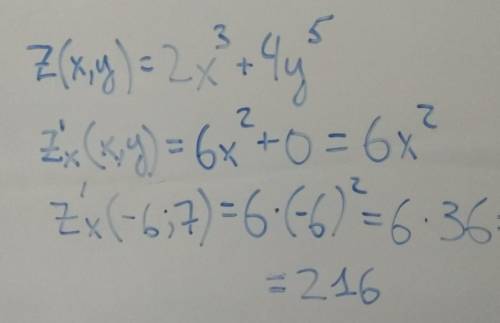 z(x,y)=2x³+4y⁵
z'ₓ(x,y)=6x²+0=6x²
z'ₓ(-6;7)=6·(-6)²=6·36=
=216